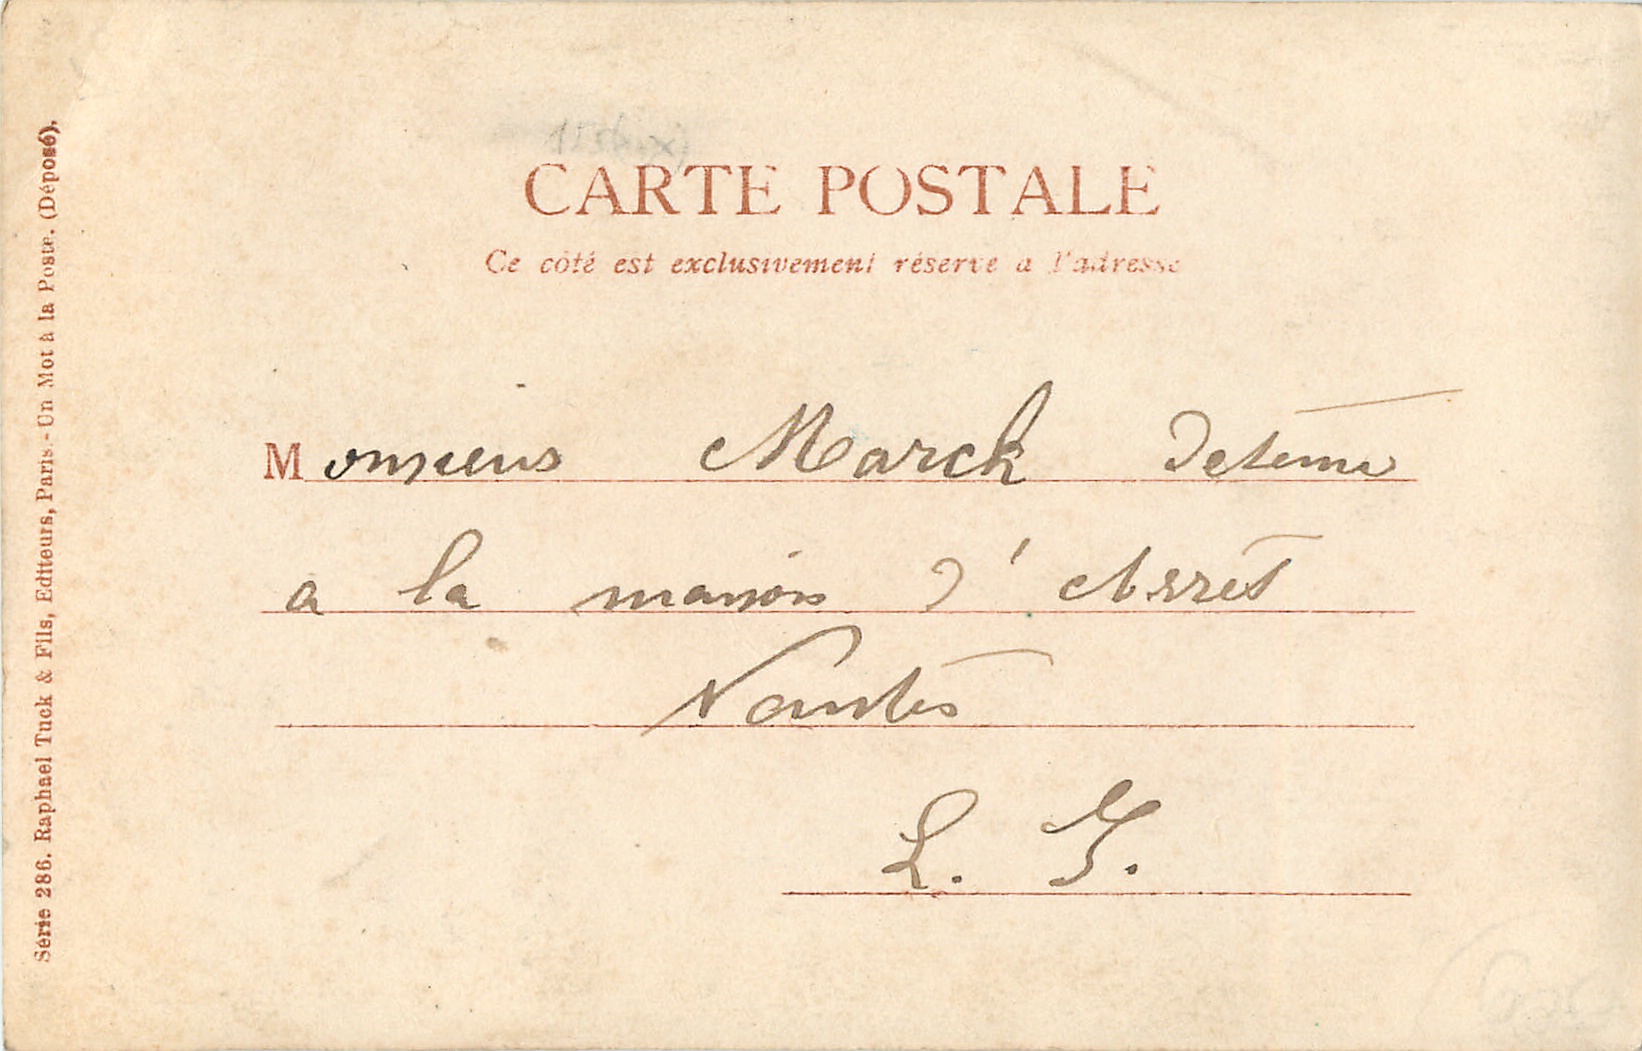 CARTE POSTALE
Ce côté est exclusivement réservé a l'adresse
Monsieur Marck Détenu
a la maison d'Arrêt
Nantes
L. I.
Série 286. Raphael Tuck & Fils, Editeurs, Paris.-Un Mot à la Poste. (Déposé).